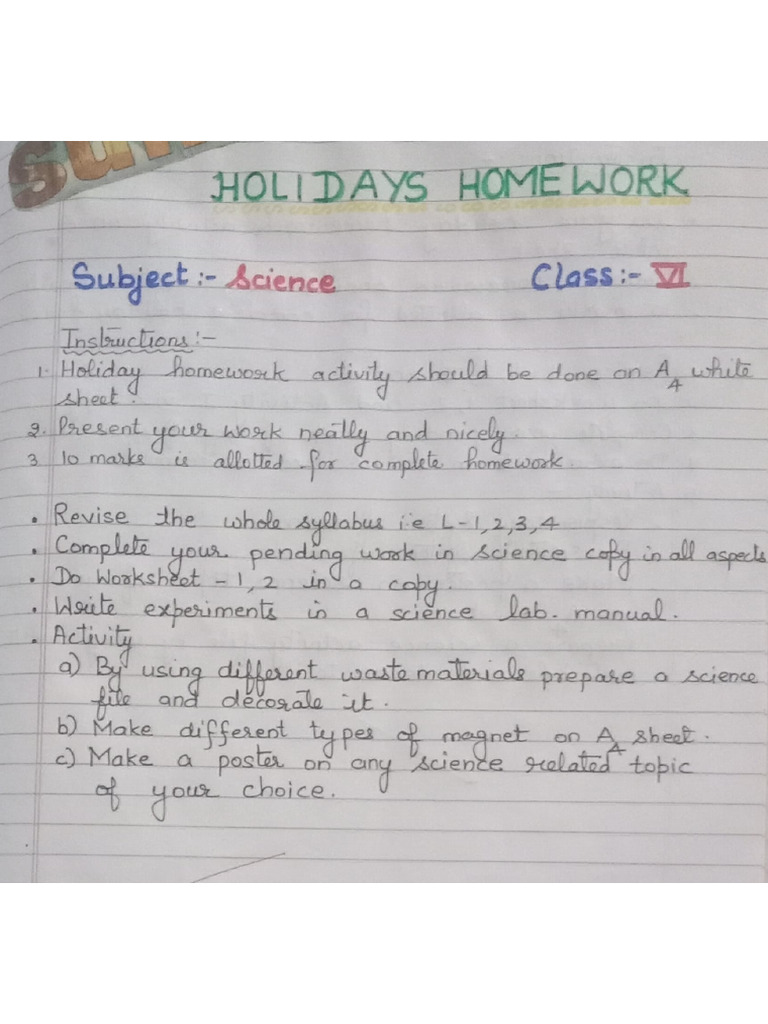 HOLIDAYS HOMEWORK
Subject:- Science Class:- VI
Instructions:-
1. Holiday homework activity should be done on A4 white
sheet.
2. Present your work neatly and nicely.
3. 10 marks is allotted for complete homework.
• Revise the whole syllabus i.e L-1,2,3,4
• Complete your pending work in science copy in all aspects
• Do Worksheet - 1, 2 in a copy.
• Write experiments in a science lab. manual.
• Activity
a) By using different waste materials prepare a science
file and decorate it.
b) Make different types of magnet on A4 sheet.
c) Make a poster on any science related topic
of your choice.